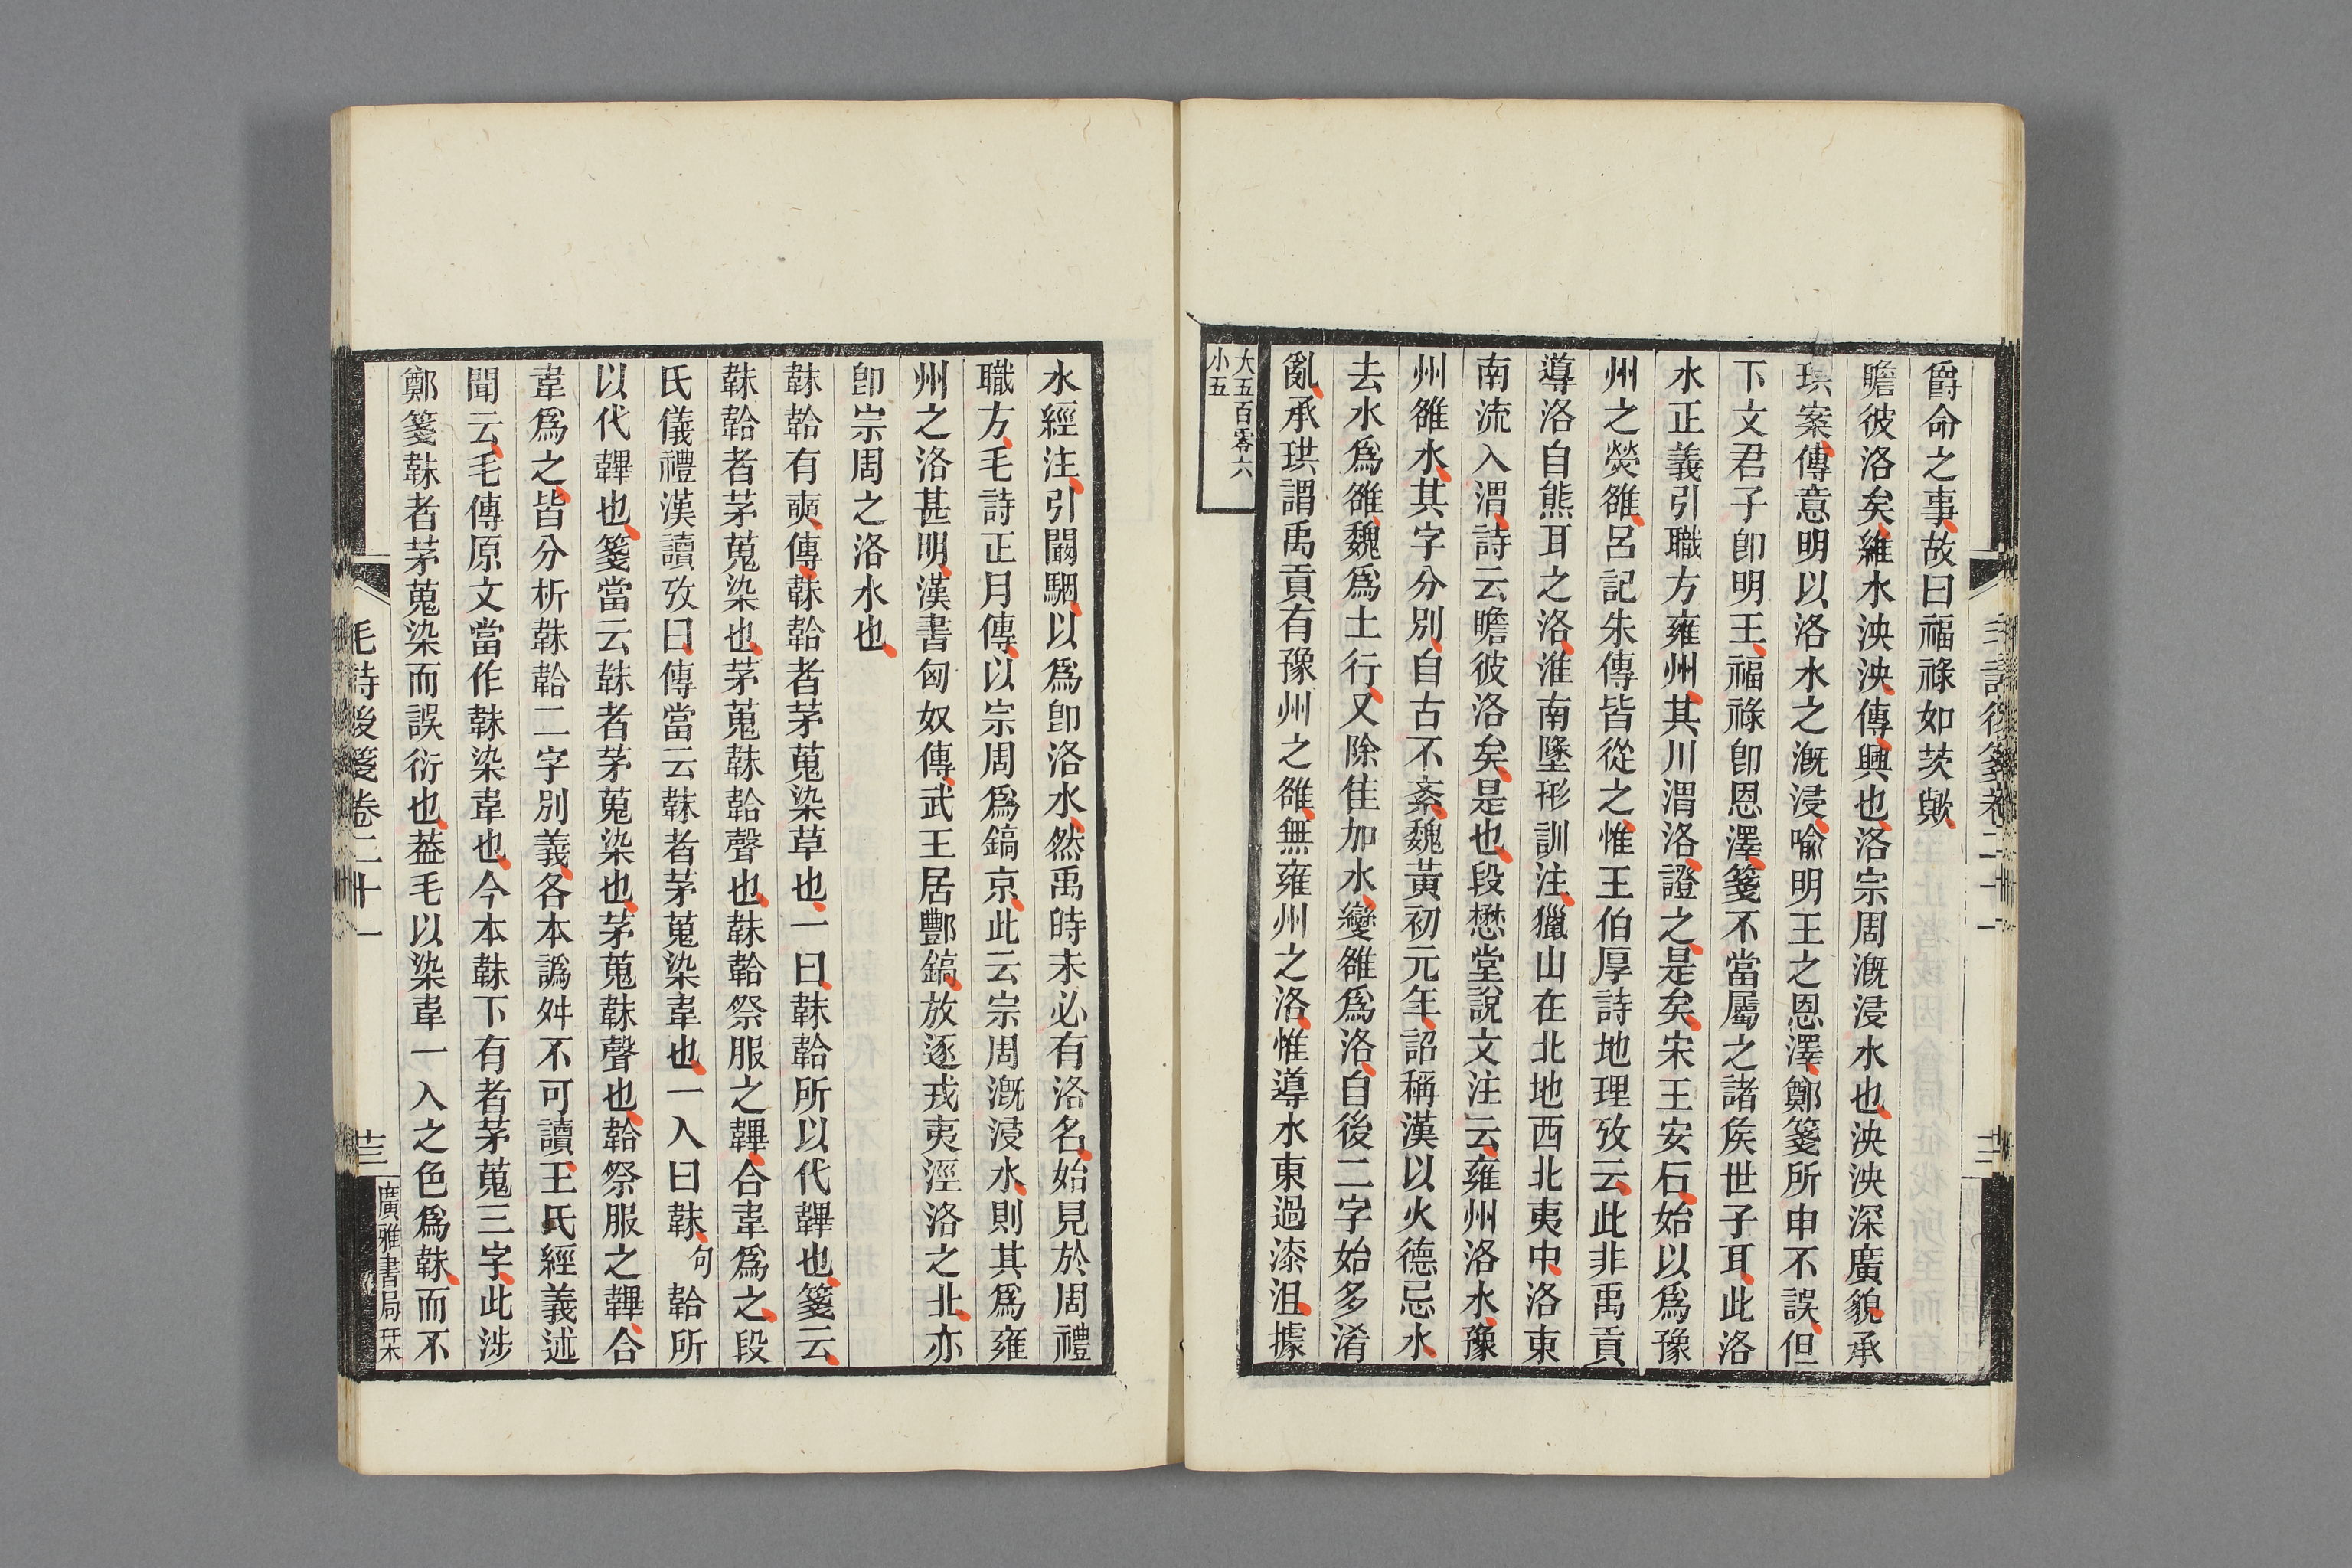 爵命之事故曰福祿如茨歟
瞻彼洛矣維水泱泱傳興也洛宗周漑浸水也泱泱深廣貌承
珙案傳意明以洛水之漑浸喻明王之恩澤鄭箋所申不誤但
下文君子卽明王福祿卽恩澤箋不當屬之諸矦世子耳此洛
水正義引職方雍州其川渭洛證之是矣宋王安石始以爲豫
州之熒雒呂記朱傳皆從之惟王伯厚詩地理攷云此非禹貢
導洛自熊耳之洛淮南墬形訓注獵山在北地西北夷中洛東
南流入渭詩云瞻彼洛矣是也段懋堂說文注云雍州洛水豫
州雒水其字分別自古不紊魏黃初元年詔稱漢以火德忌水
去水爲雒魏爲土行又除隹加水變雒爲洛自後二字始多淆
亂承珙謂禹貢有豫州之雒無雍州之洛惟導水東過漆沮據
大五百零六
小五
水經注引闞駰以爲卽洛水然禹時未必有洛名始見於周禮
職方毛詩正月傳以宗周爲鎬京此云宗周漑浸水則其爲雍
州之洛甚明漢書匈奴傳武王居酆鎬放逐戎夷涇洛之北亦
卽宗周之洛水也
韎韐有奭傳韎韐者茅蒐染草也一曰韎韐所以代韠也箋云
韎韐者茅蒐染也茅蒐韎韐聲也韎韐祭服之韠合韋爲之段
氏儀禮漢讀攷曰傳當云韎者茅蒐染韋也一入曰韎句韐所
以代韠也箋當云韎者茅蒐染也茅蒐韎聲也韐祭服之韠合
韋爲之皆分析韎韐二字別義各本譌舛不可讀王氏經義述
聞云毛傳原文當作韎染韋也今本韎下有者茅蒐三字此涉
鄭箋韎者茅蒐染而誤衍也葢毛以染韋一入之色爲韎而不
毛詩後箋卷二十一
十三
廣雅書局栞